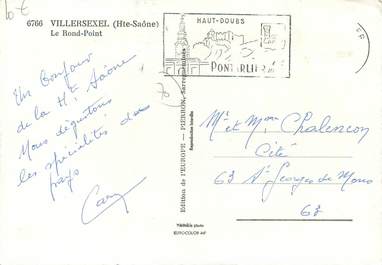 10 €
6766 VILLERSEXEL (Hte-Saône)
Le Rond-Point
HAUT-DOUBS
PONTARLIER
Un bonjour
de la Hte Saône
Nous dégustons
les spécialités du
pays
Edition de l'EUROPE — PIERRON, Sarreguemines
Reproduction interdite
Mr et Mme Chalencon
Cité
63 St Georges de Mons
63
Véritable photo
EUROCOLOR